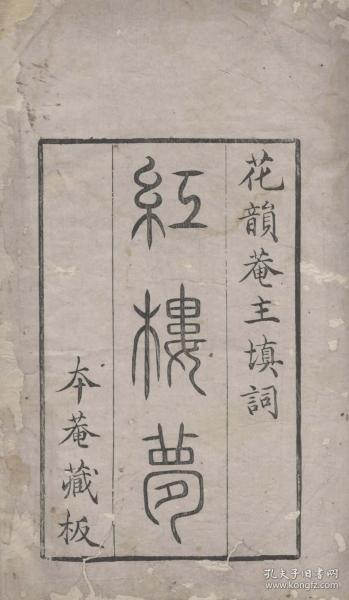 花韻菴主填詞
紅樓夢
本菴藏板
孔夫子旧书网
www.kongfz.com